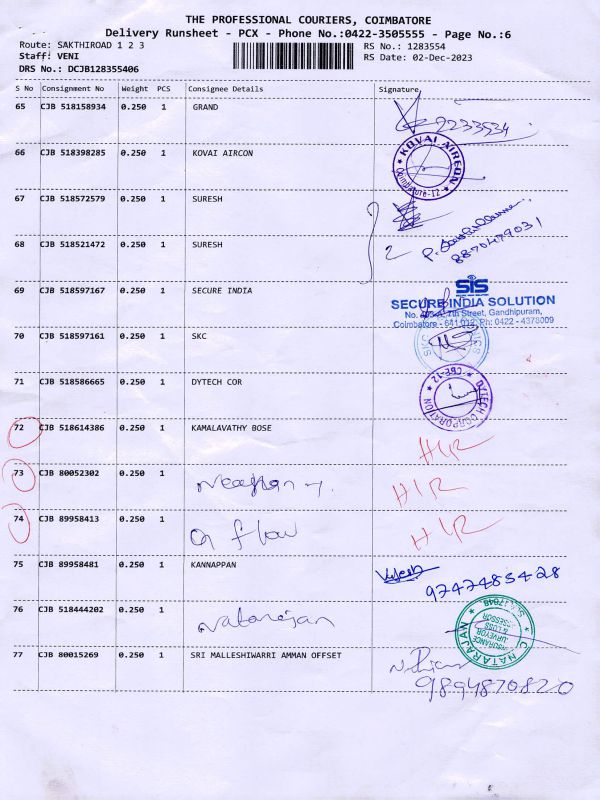 THE PROFESSIONAL COURIERS, COIMBATORE
Delivery Runsheet - PCX - Phone No.:0422-3505555 - Page No.:6
Route: SAKTHIROAD 1 2 3
Staff: VENI
DRS No.: DCJB128355406
RS No.: 1283554
RS Date: 02-Dec-2023
S No Consignment No Weight PCS Consignee Details Signature
65 CJB 518158934 0.250 1 GRAND
9233534
66 CJB 518398285 0.250 1 KOVAI AIRCON
KOVAI AIRCON
Coimbatore-12
67 CJB 518572579 0.250 1 SURESH
68 CJB 518521472 0.250 1 SURESH
2
P.
8870479031
69 CJB 518597167 0.250 1 SECURE INDIA
SIS
SECURE INDIA SOLUTION
7th Street, Gandhipuram,
Coimbatore - 641 012. Ph: 0422 - 4378009
70 CJB 518597161 0.250 1 SKC
71 CJB 518586665 0.250 1 DYTECH COR
DYTECH CORPORATION
CBE-12
72 CJB 518614386 0.250 1 KAMALAVATHY BOSE
HLR
73 CJB 80052302 0.250 1
HLR
74 CJB 89958413 0.250 1 flow
HLR
75 CJB 89958481 0.250 1 KANNAPPAN
9747485428
76 CJB 518444202 0.250 1 Natarajan
C. NATARAJAN
INSURANCE
SURVEYOR
& LOSS
ASSESSOR
77 CJB 80015269 0.250 1 SRI MALLESHIWARRI AMMAN OFFSET
9894870820